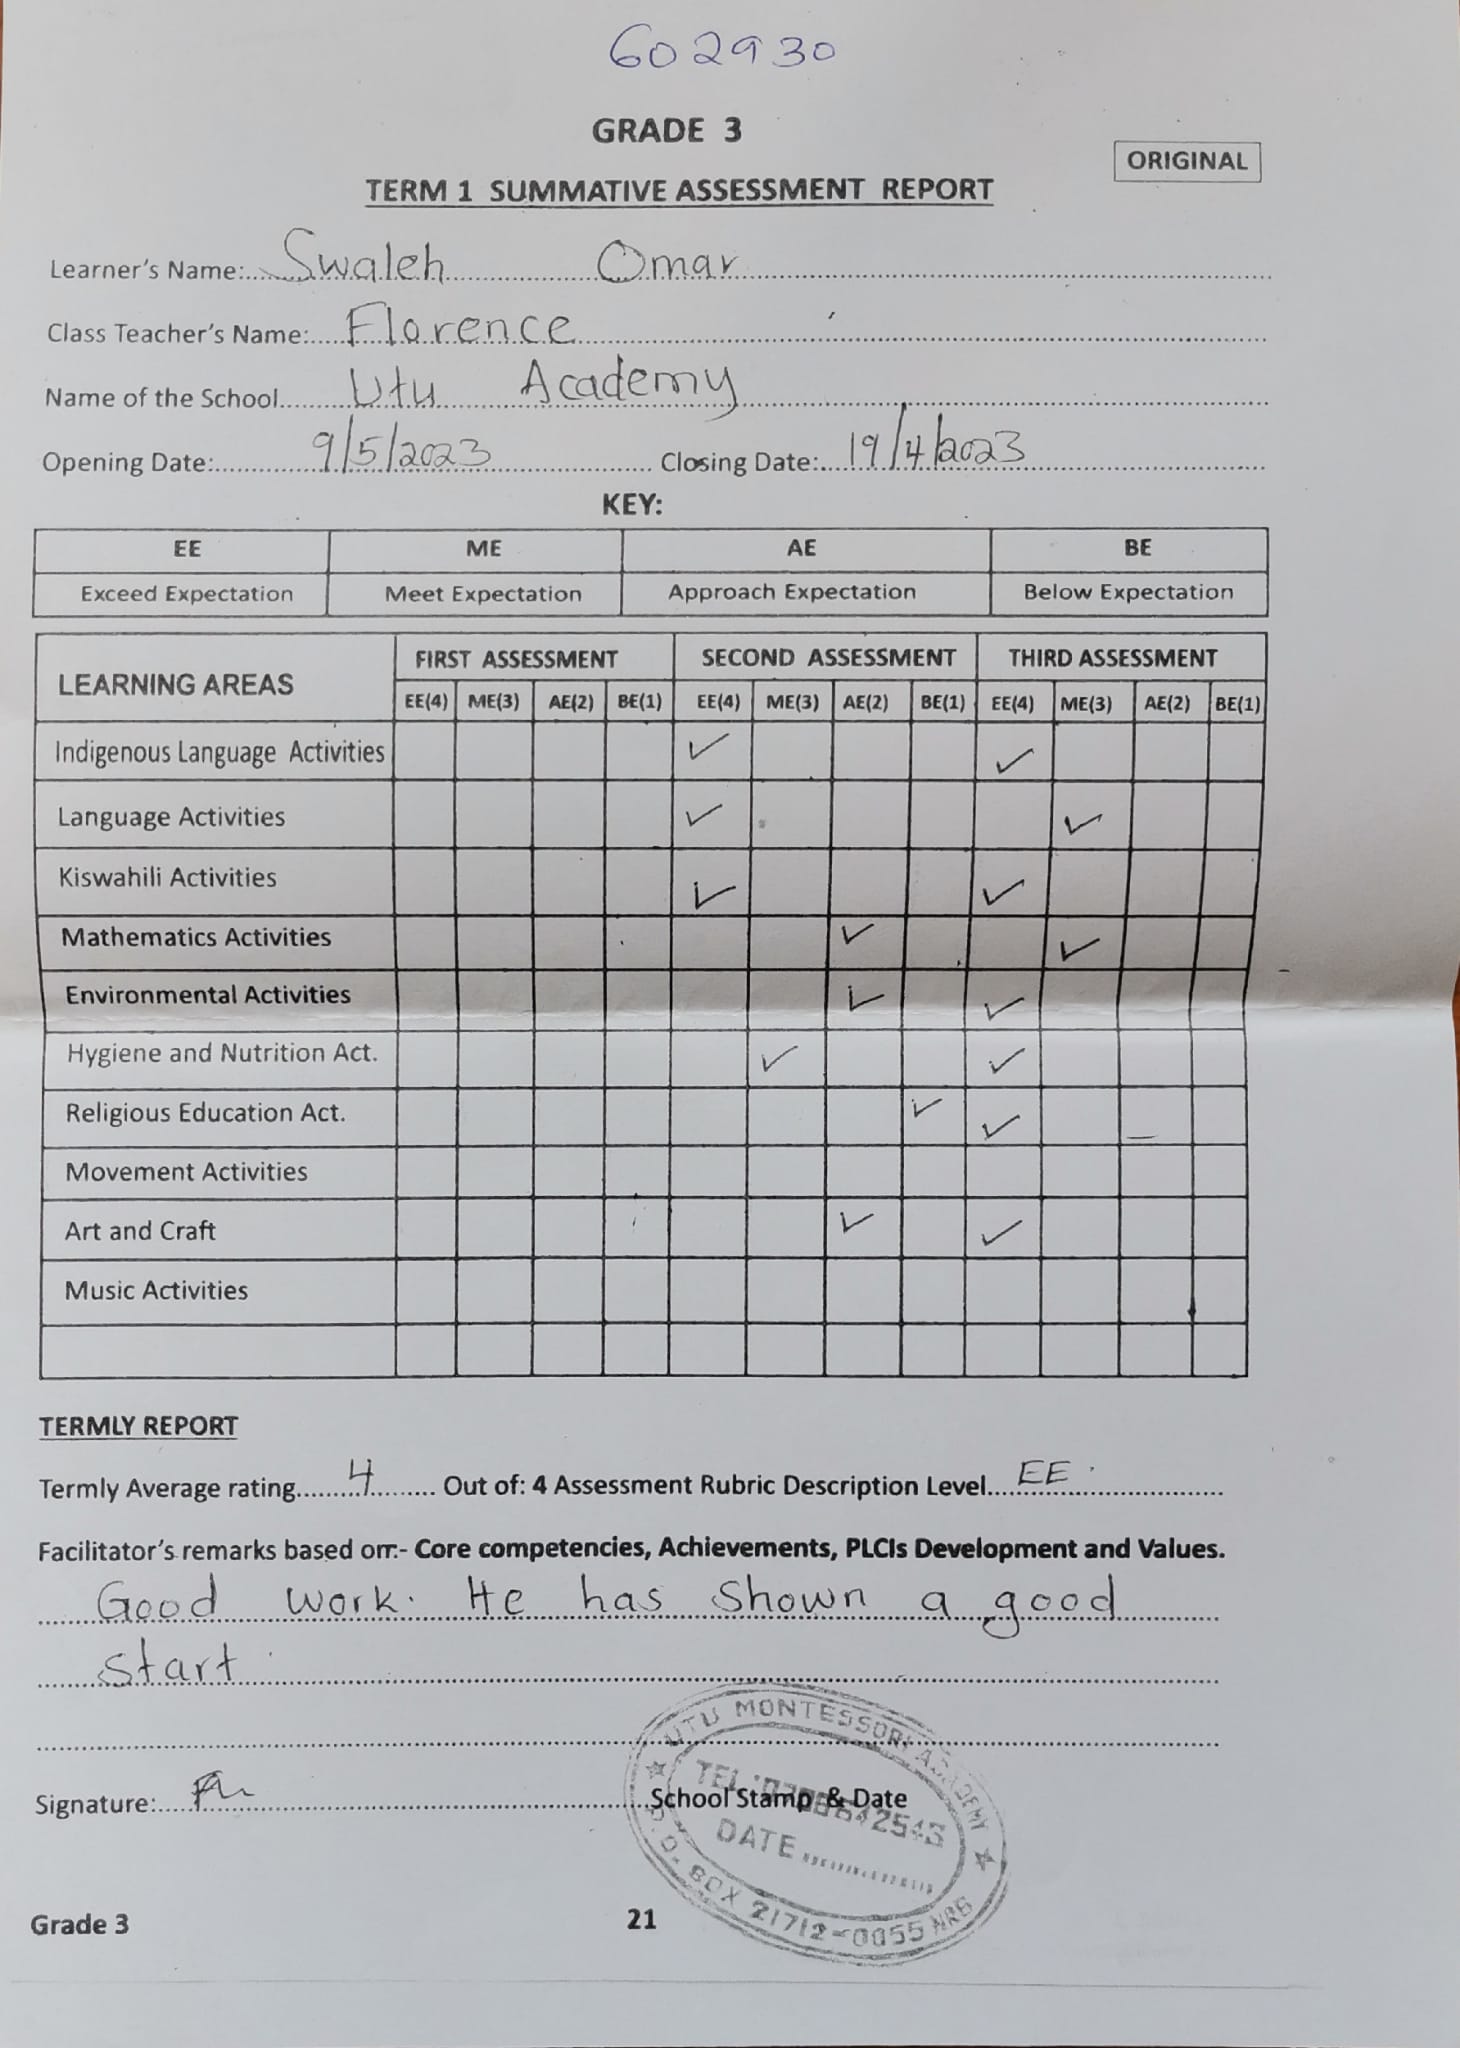 602930
GRADE 3
ORIGINAL
TERM 1 SUMMATIVE ASSESSMENT REPORT
Learner's Name: Swaleh Omar
Class Teacher's Name: Florence
Name of the School Utu Academy
Opening Date: 9/5/2023 Closing Date: 19/4/2023
KEY:
EE ME AE BE
Exceed Expectation Meet Expectation Approach Expectation Below Expectation
LEARNING AREAS FIRST ASSESSMENT SECOND ASSESSMENT THIRD ASSESSMENT
EE(4) ME(3) AE(2) BE(1) EE(4) ME(3) AE(2) BE(1) EE(4) ME(3) AE(2) BE(1)
Indigenous Language Activities ✓ ✓
Language Activities ✓ ✓
Kiswahili Activities ✓ ✓
Mathematics Activities ✓ ✓
Environmental Activities ✓ ✓
Hygiene and Nutrition Act. ✓ ✓
Religious Education Act. ✓ ✓
Movement Activities
Art and Craft ✓ ✓
Music Activities
TERMLY REPORT
Termly Average rating 4 Out of: 4 Assessment Rubric Description Level EE
Facilitator's remarks based on:- Core competencies, Achievements, PLCIs Development and Values.
Good work. He has shown a good
start
UTU MONTESSORI ACADEMY
TEL:
Signature: School Stamp & Date
DATE
P.O. BOX 21712-0055 NRB
Grade 3 21